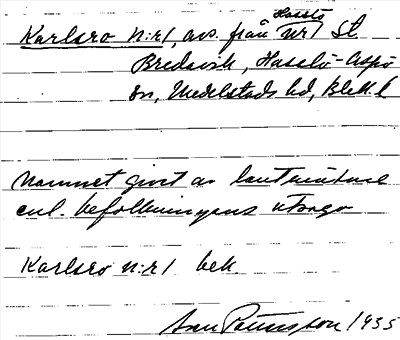 Hasslö
Karlsro n:r 1, avs. från nr 1 St.
Bredavik, Hasslö-Aspö
sn, Medelstads hd, Blek. l
Namnet givet av lantmätare
enl. befolkningens utsago
Karlsro n:r 1 bek
1935